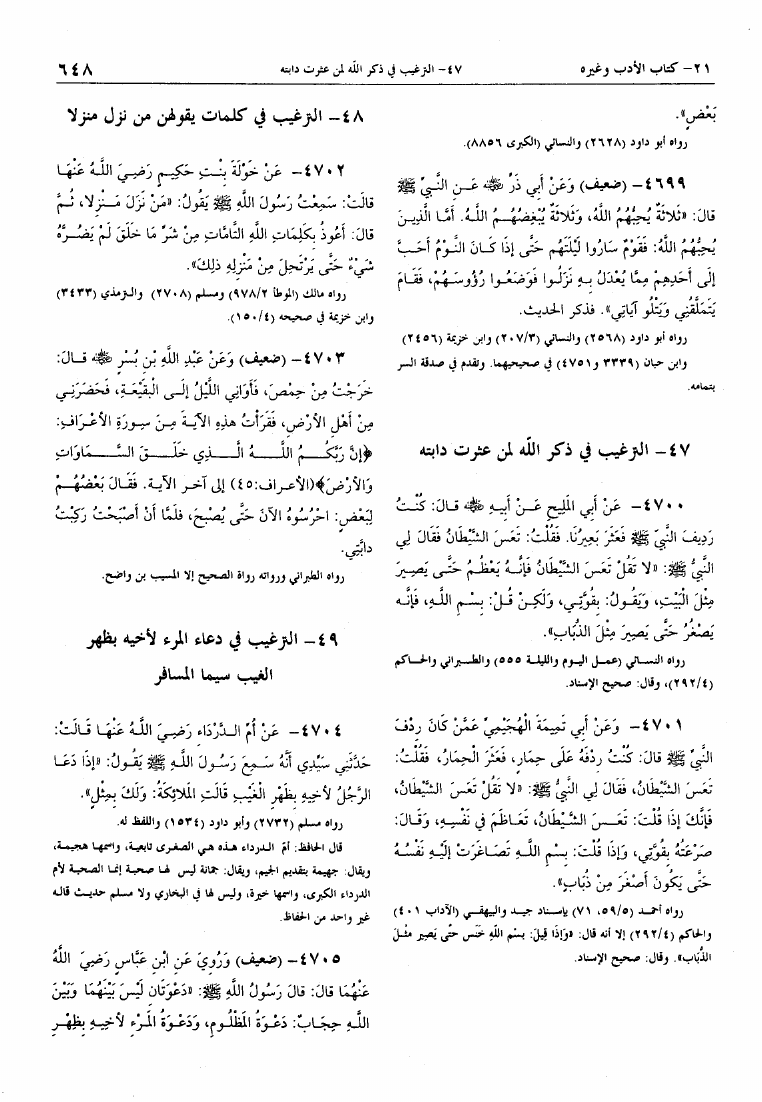 ٢١- كتاب الأدب وغيره
٤٧- الترغيب في ذكر الله لمن عثرت دابته
٦٤٨
بَعْضٍ».
رواه أبو داود (٢٦٢٨) والنسائي (الكبرى ٨٨٥٦).
٤٦٩٩- (ضعيف) وَعَنْ أَبِي ذَرٍّ ﷺ عَـنِ النَّبِيِّ ﷺ
قَالَ: «ثَلاَثَةٌ يُحِبُّهُمُ اللهُ، وَثَلاَثَةٌ يُبْغِضُهُـمُ اللهُ. أَمَّا الَّذِيـنَ
يُحِبُّهُمُ اللهُ: فَقَوْمٌ سَارُوا لَيْلَتَهُم حَتَّى إِذَا كَـانَ النَّـوْمُ أَحَـبَّ
إِلَى أَحَدِهِمْ مِمَّا يُعْدَلُ بِـهِ نَزَلُـوا فَوَضَعُـوا رُؤُوسَـهُمْ، فَقَـامَ
يَتَمَلَّقُنِي وَيَتْلُو آيَاتِي». فذكر الحديث.
رواه أبو داود (٢٥٦٨) والنسائي (٢٠٧/٣) وابن خزيمة (٢٤٥٦)
وابن حبان (٣٣٣٩ و٤٧٥١) في صحيحيهما. وتقدم في صدقة السر
بتمامه.
٤٧- الترغيب في ذكر الله لمن عثرت دابته
٤٧٠٠- عَنْ أَبِي الْمَلِيحِ عَـنْ أَبِيـهِ ﷺ قَـالَ: كُنْـتُ
رَدِيفَ النَّبِيِّ ﷺ فَعَثَرَ بَعِيرُنَا. فَقُلْتُ: تَعِسَ الشَّيْطَانُ فَقَالَ لِي
النَّبِيُّ ﷺ: «لا تَقُلْ تَعِسَ الشَّيْطَانُ فَإِنَّـهُ يَعْظُـمُ حَتَّـى يَصِـيرَ
مِثْلَ الْبَيْتِ، وَيَقُولُ: بِقُوَّتِي، وَلَكِـنْ قُـلْ: بِسْـمِ اللهِ، فَإِنَّـه
يَصْغُرُ حَتَّى يَصِيرَ مِثْلَ الذُّبَابِ».
رواه النسـائي (عمـل اليـوم والليلـة ٥٥٥) والطـبراني والحـاكم
(٢٩٢/٤)، وقال: صحيح الإسناد.
٤٧٠١- وَعَنْ أَبِي تَمِيمَةَ الْهُجَيْمِيِّ عَمَّنْ كَانَ رِدْفَ
النَّبِيِّ ﷺ قالَ: كُنْتُ رِدْفَهُ عَلَى حِمَارٍ، فَعَثَرَ الْحِمَارُ، فَقُلْتُ:
تَعِسَ الشَّيْطَانُ، فَقَالَ لِي النَّبِيُّ ﷺ: «لا تَقُلْ تَعِـسَ الشَّيْطَانُ،
فَإِنَّكَ إِذَا قُلْتَ: تَعِـسَ الشَّيْطَانُ، تَعَـاظَمَ فِي نَفْسِـهِ، وَقَـالَ:
صَرَعْتُهُ بِقُوَّتِي، وَإِذَا قُلْتَ: بِسْـمِ اللَّـهِ تَصَـاغَرَتْ إِلَيْـهِ نَفْسُـهُ
حَتَّى يَكُونَ أَصْغَرَ مِنْ ذُبَابٍ».
رواه أحمـد (٥٩/٥، ٧١) بإسـناد جيـد والبيهقـي (الآداب ٤٠١)
والحاكم (٢٩٢/٤) إلا أنه قال: «وَإِذَا قِيلَ: بِسْمِ اللهِ خَنَسَ حَتَّى يَصِيرَ مِثْلَ
الذُّبَابِ». وقال: صحيح الإسناد.
٤٨- الترغيب في كلمات يقولهن من نزل منزلا
٤٧٠٢- عَنْ خَوْلَةَ بِنْـتِ حَكِيـمٍ رَضِيَ اللَّـهُ عَنْهَا
قالَتْ: سَمِعْتُ رَسُولَ اللهِ ﷺ يَقُولُ: «مَنْ نَزَلَ مَـنْزِلا، ثُـمَّ
قالَ: أَعُوذُ بِكَلِمَاتِ اللهِ التَّامَّاتِ مِنْ شَرِّ مَا خَلَقَ لَمْ يَضُـرَّهُ
شَيْءٌ حَتَّى يَرْتَحِلَ مِنْ مَنْزِلِهِ ذلِكَ».
رواه مالك (الموطأ ٩٧٨/٢) ومسلم (٢٧٠٨) والـترمذي (٣٤٣٣)
وابن خزيمة في صحيحه (١٥٠/٤).
٤٧٠٣- (ضعيف) وَعَنْ عَبْدِ اللهِ بْنِ بُسْرٍ ﷺ قَـالَ:
خَرَجْتُ مِنْ حِمْصَ، فَآوَانِي اللَّيْلُ إِلَـى الْبُقَيْعَـةِ، فَحَضَرَنِـي
مِنْ أَهْلِ الأَرْضِ، فَقَرَأْتُ هذِهِ الآيَـةَ مِـنَ سـورَةِ الأَعْـرَافِ:
﴿إِنَّ رَبَّكُـــمُ اللَّـــهُ الَّـــذِي خَلَـــقَ السَّـــمَاوَاتِ
وَالأَرْضَ﴾(الأعراف:٤٥) إلى آخـر الآيَة. فَقَـالَ بَعْضُهُـمْ
لِبَعْضٍ: احْرُسُوهُ الآنَ حَتَّى يُصْبِحَ، فلمَّا أَنْ أَصْبَحْتُ رَكِبْتُ
دابَّتِي.
رواه الطبراني ورواته رواة الصحيح إلا المسيب بن واضح.
٤٩- الترغيب في دعاء المرء لأخيه بظهر
الغيب سيما المسافر
٤٧٠٤- عَنْ أُمِّ الـدَّرْدَاءِ رَضِـيَ اللَّـهُ عَنْهَا قَـالَتْ:
حَدَّثَنِي سَيِّدِي أَنَّهُ سَـمِعَ رَسُـولَ اللَّهِ ﷺ يَقُولُ: «إِذَا دَعَـا
الرَّجُلُ لأَخِيهِ بِظَهْرِ الْغَيْبِ قَالَتِ الْمَلاَئِكَةُ: وَلَكَ بِمِثْلٍ».
رواه مسلم (٢٧٣٢) وأبو داود (١٥٣٤) واللفظ له.
قال الحافظ: أمّ الـدرداء هـذه هي الصغرى تابعيـة، واسمهـا هجيمـة،
ويقال: جهيمة بتقديم الجيم، ويقال: جمانة ليس لها صحبة إنما الصحبة لأم
الدرداء الكبرى، واسمها خيرة، وليس لها في البخاري ولا مسلم حديـث قالـه
غير واحد من الحفاظ.
٤٧٠٥- (ضعيف) وَرُوِيَ عَنِ ابْنِ عَبَّاسٍ رَضِيَ اللَّهُ
عَنْهُمَا قَالَ: قالَ رَسُولُ اللهِ ﷺ: «دَعْوَتَانِ لَيْسَ بَيْنَهُمَا وَبَيْنَ
اللَّـهِ حِجَـابٌ: دَعْـوَةُ الْمَظْلُـومِ، وَدَعْـوَةُ الْمَرْءِ لأَخِيـهِ بِظَهْـرِ